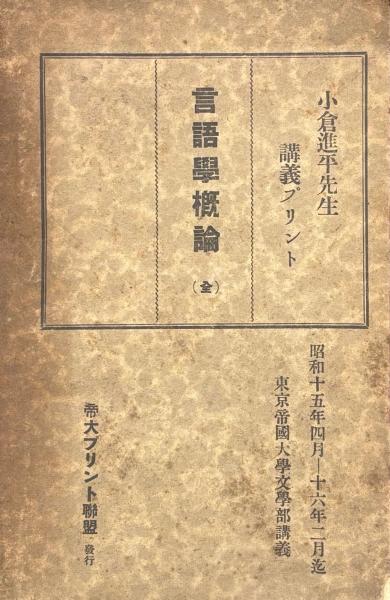 小倉進平先生
講義プリント
言語學概論(全)
昭和十五年四月—十六年二月迄
東京帝國大學文學部講義
帝大プリント聯盟 發行